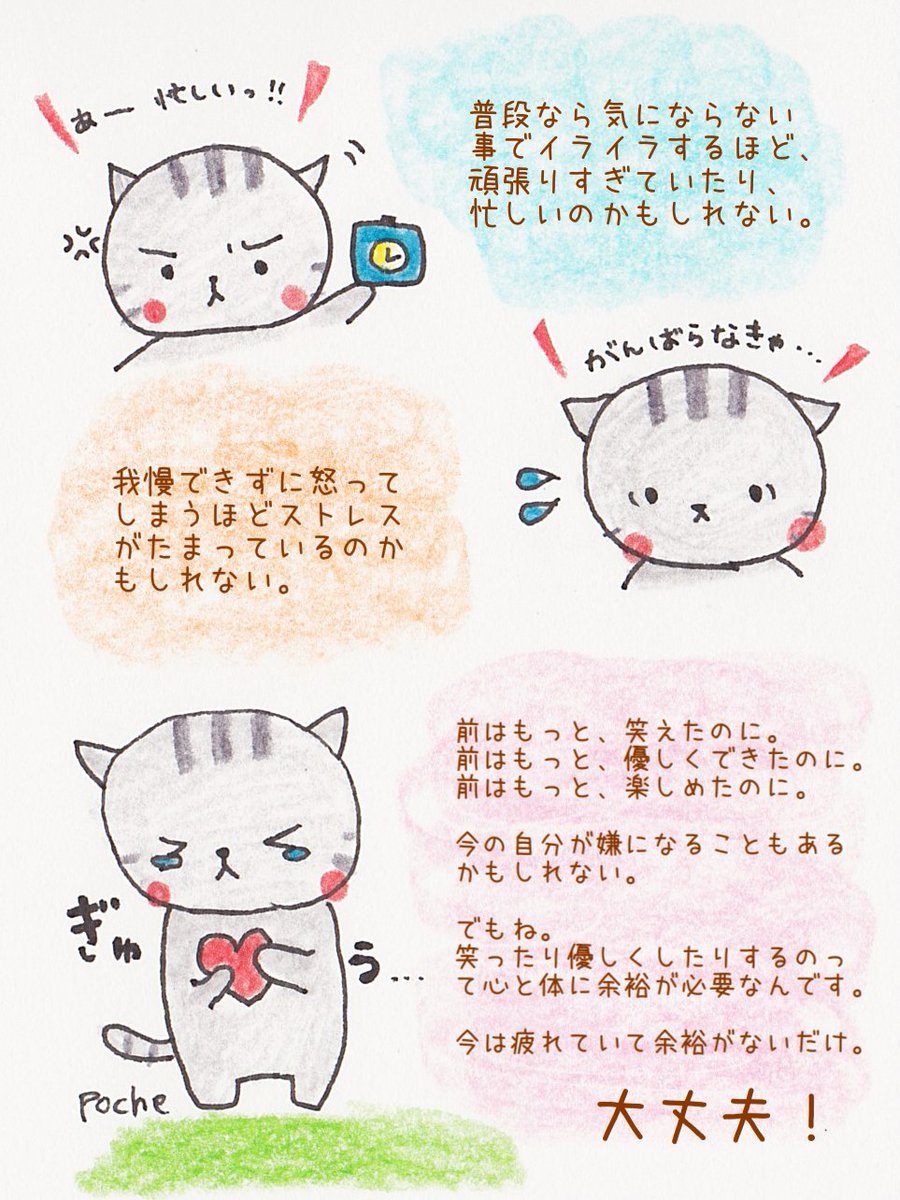 あー 忙しいっ!!
普段なら気にならない
事でイライラするほど、
頑張りすぎていたり、
忙しいのかもしれない。
がんばらなきゃ…
我慢できずに怒って
しまうほどストレス
がたまっているのか
もしれない。
前はもっと、笑えたのに。
前はもっと、優しくできたのに。
前はもっと、楽しめたのに。
今の自分が嫌になることもある
かもしれない。
でもね。
笑ったり優しくしたりするのっ
て心と体に余裕が必要なんです。
今は疲れていて余裕がないだけ。
大丈夫!
ぎゅ
う…
Poche